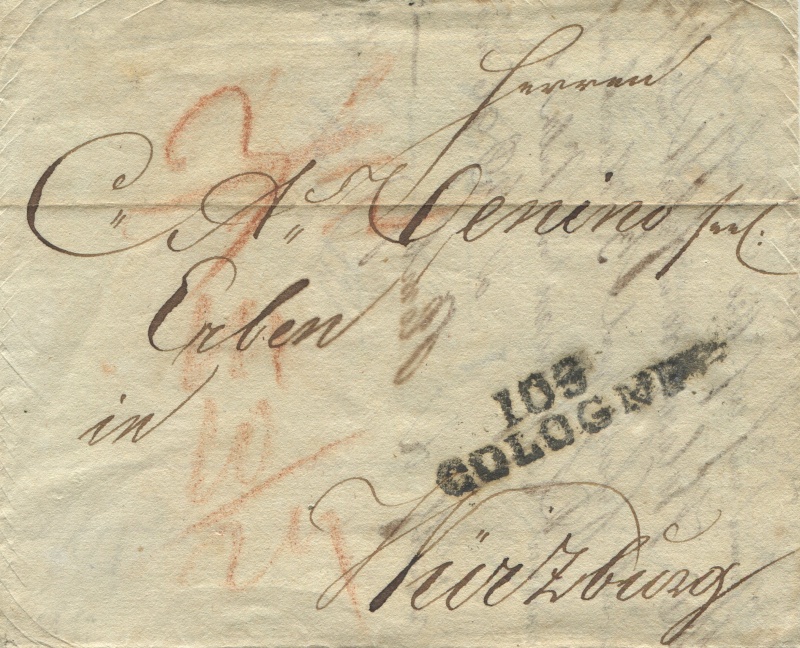 Herren
C. A. Venino seel:
Erben
in
103
COLOGNE
Würzburg